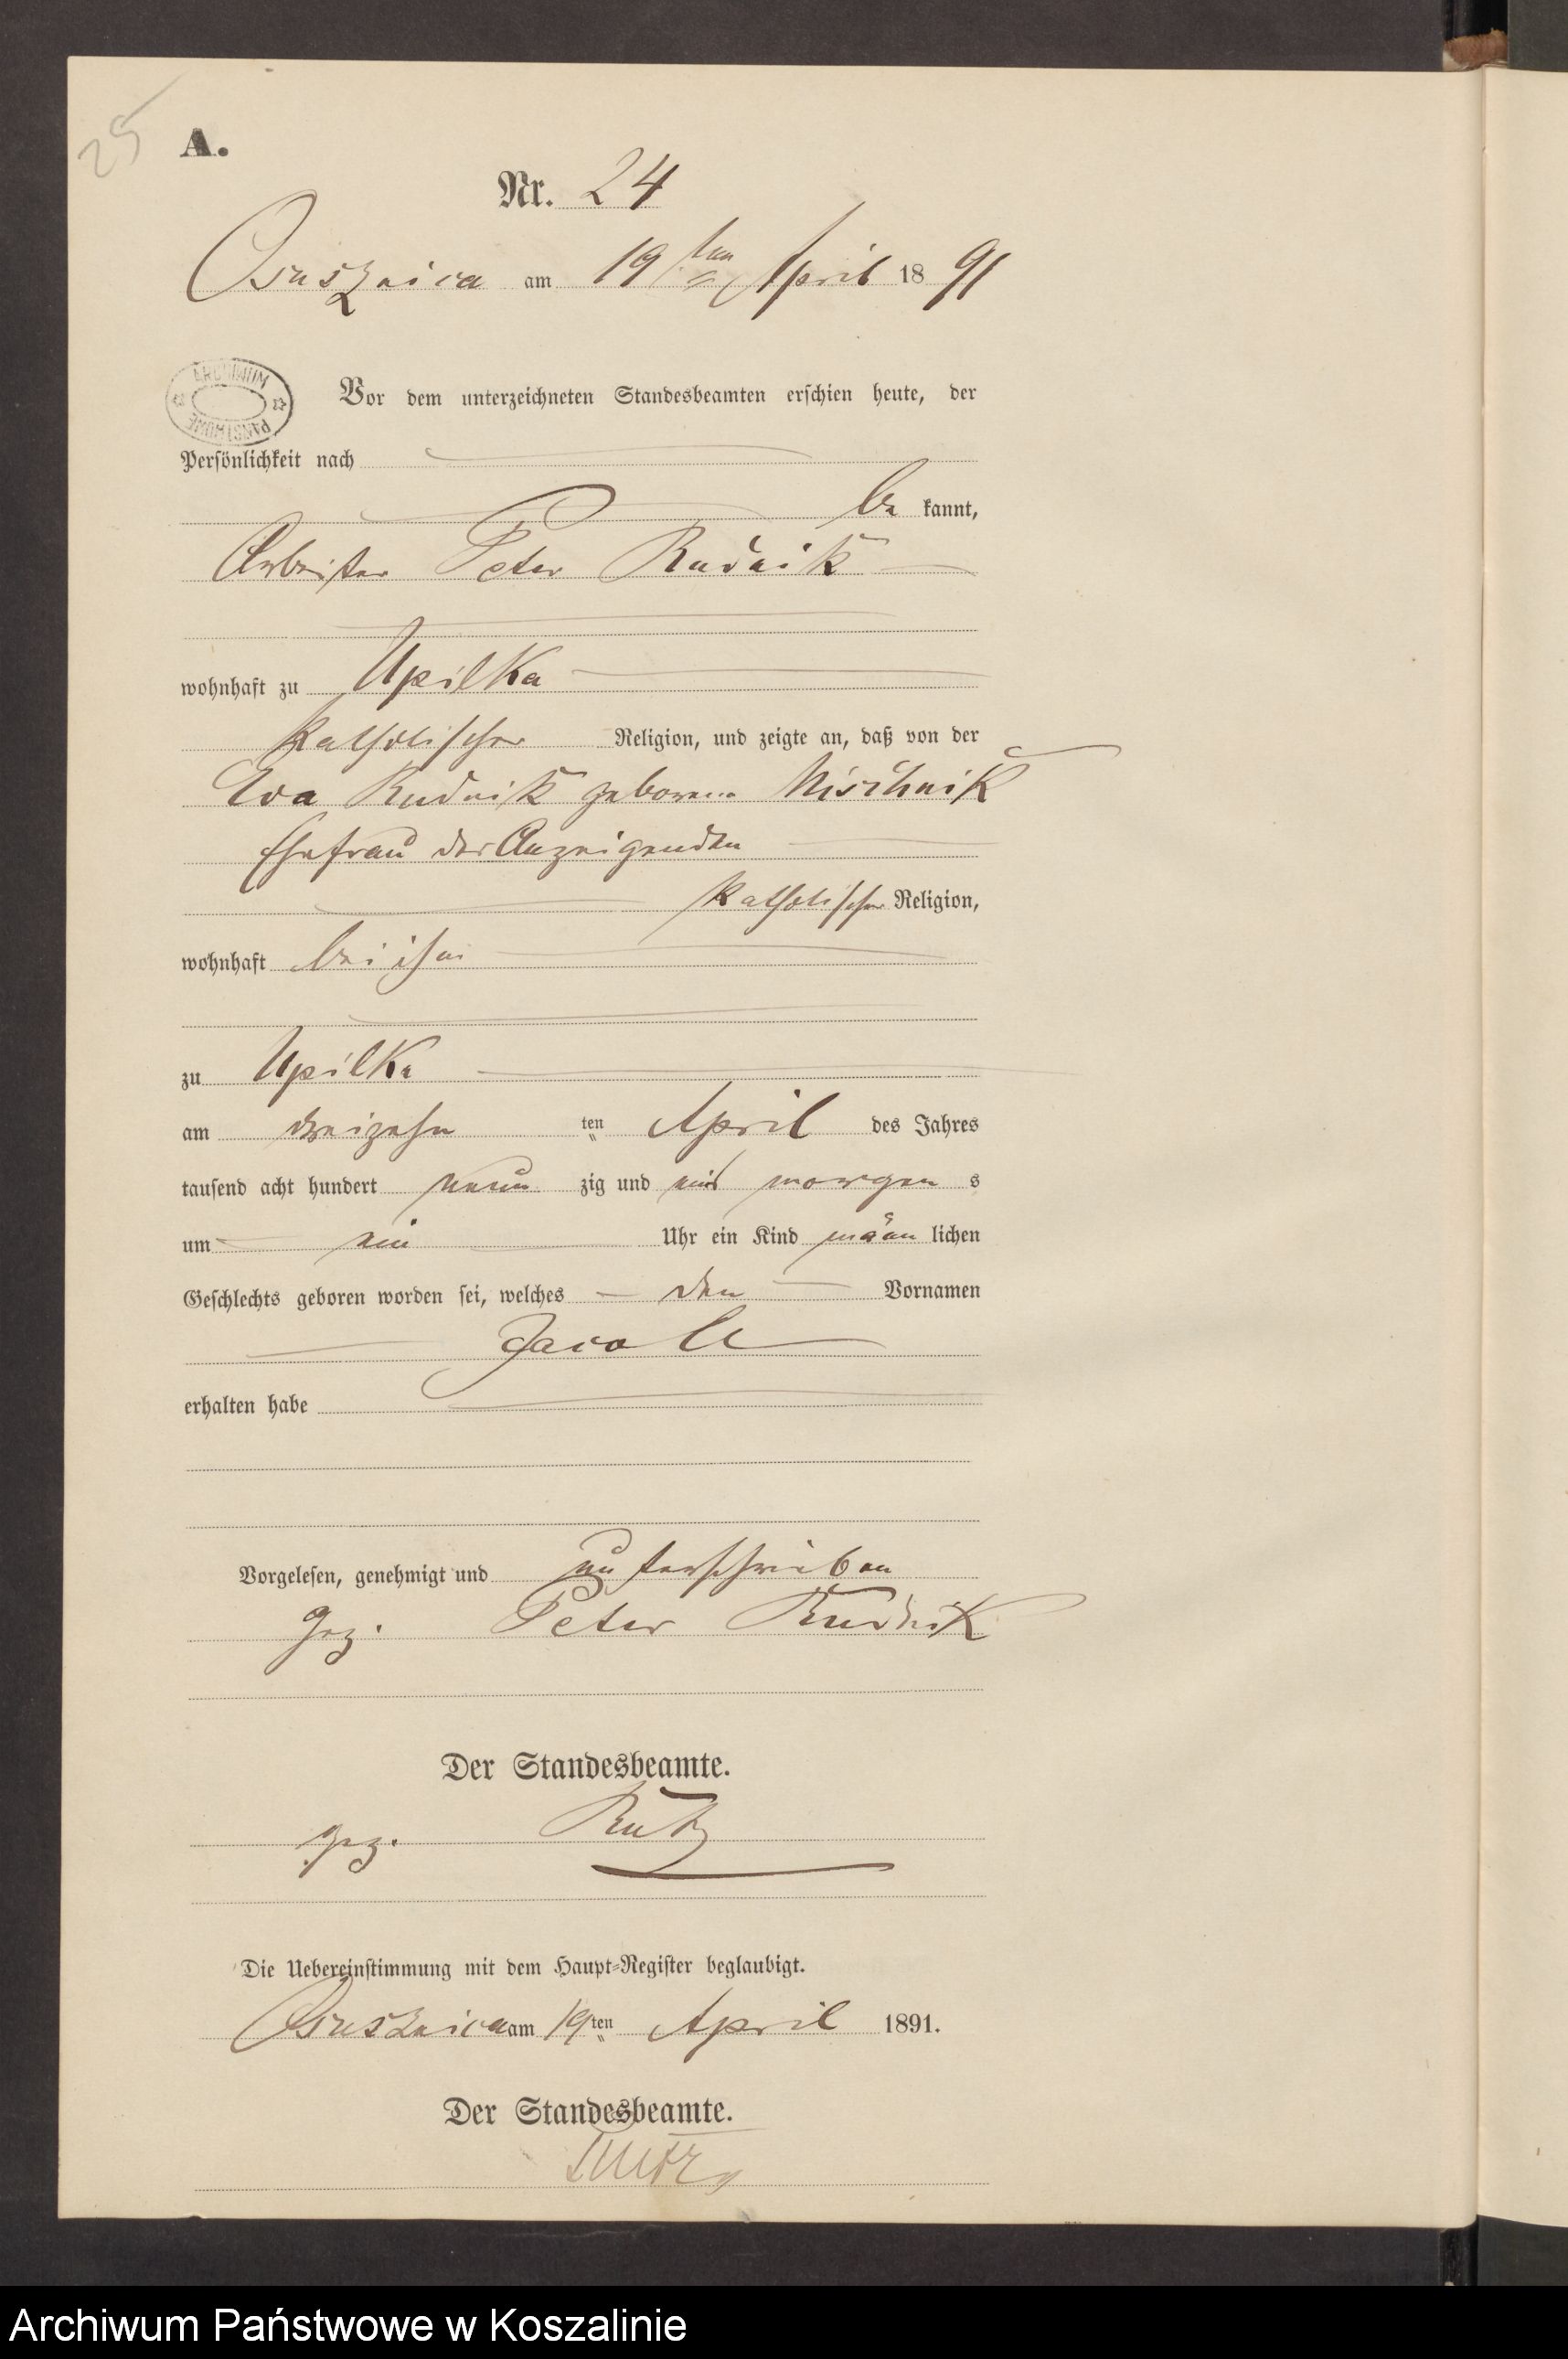 25
A.
Nr. 24
Osusznica am 19ten April 1891
ARCHIWUM PAŃSTWOWE
Vor dem unterzeichneten Standesbeamten erschien heute, der
Persönlichkeit nach
be kannt,
Arbeiter Peter Rudnik
wohnhaft zu Upilka
katholischer Religion, und zeigte an, daß von der
Eva Rudnik geborene
Ehefrau des Anzeigenden
katholischer Religion,
wohnhaft bei ihm
zu Upilka
am dreizehn ten April des Jahres
tausend acht hundert neun zig und eins morgen s
um ein Uhr ein Kind männ lichen
Geschlechts geboren worden sei, welches den Vornamen
Jacob
erhalten habe
Vorgelesen, genehmigt und unterschrieben
gez. Peter Rudnik
Der Standesbeamte.
gez.
Die Uebereinstimmung mit dem Haupt-Register beglaubigt.
Osusznica am 19ten April 1891.
Der Standesbeamte.
Archiwum Państwowe w Koszalinie